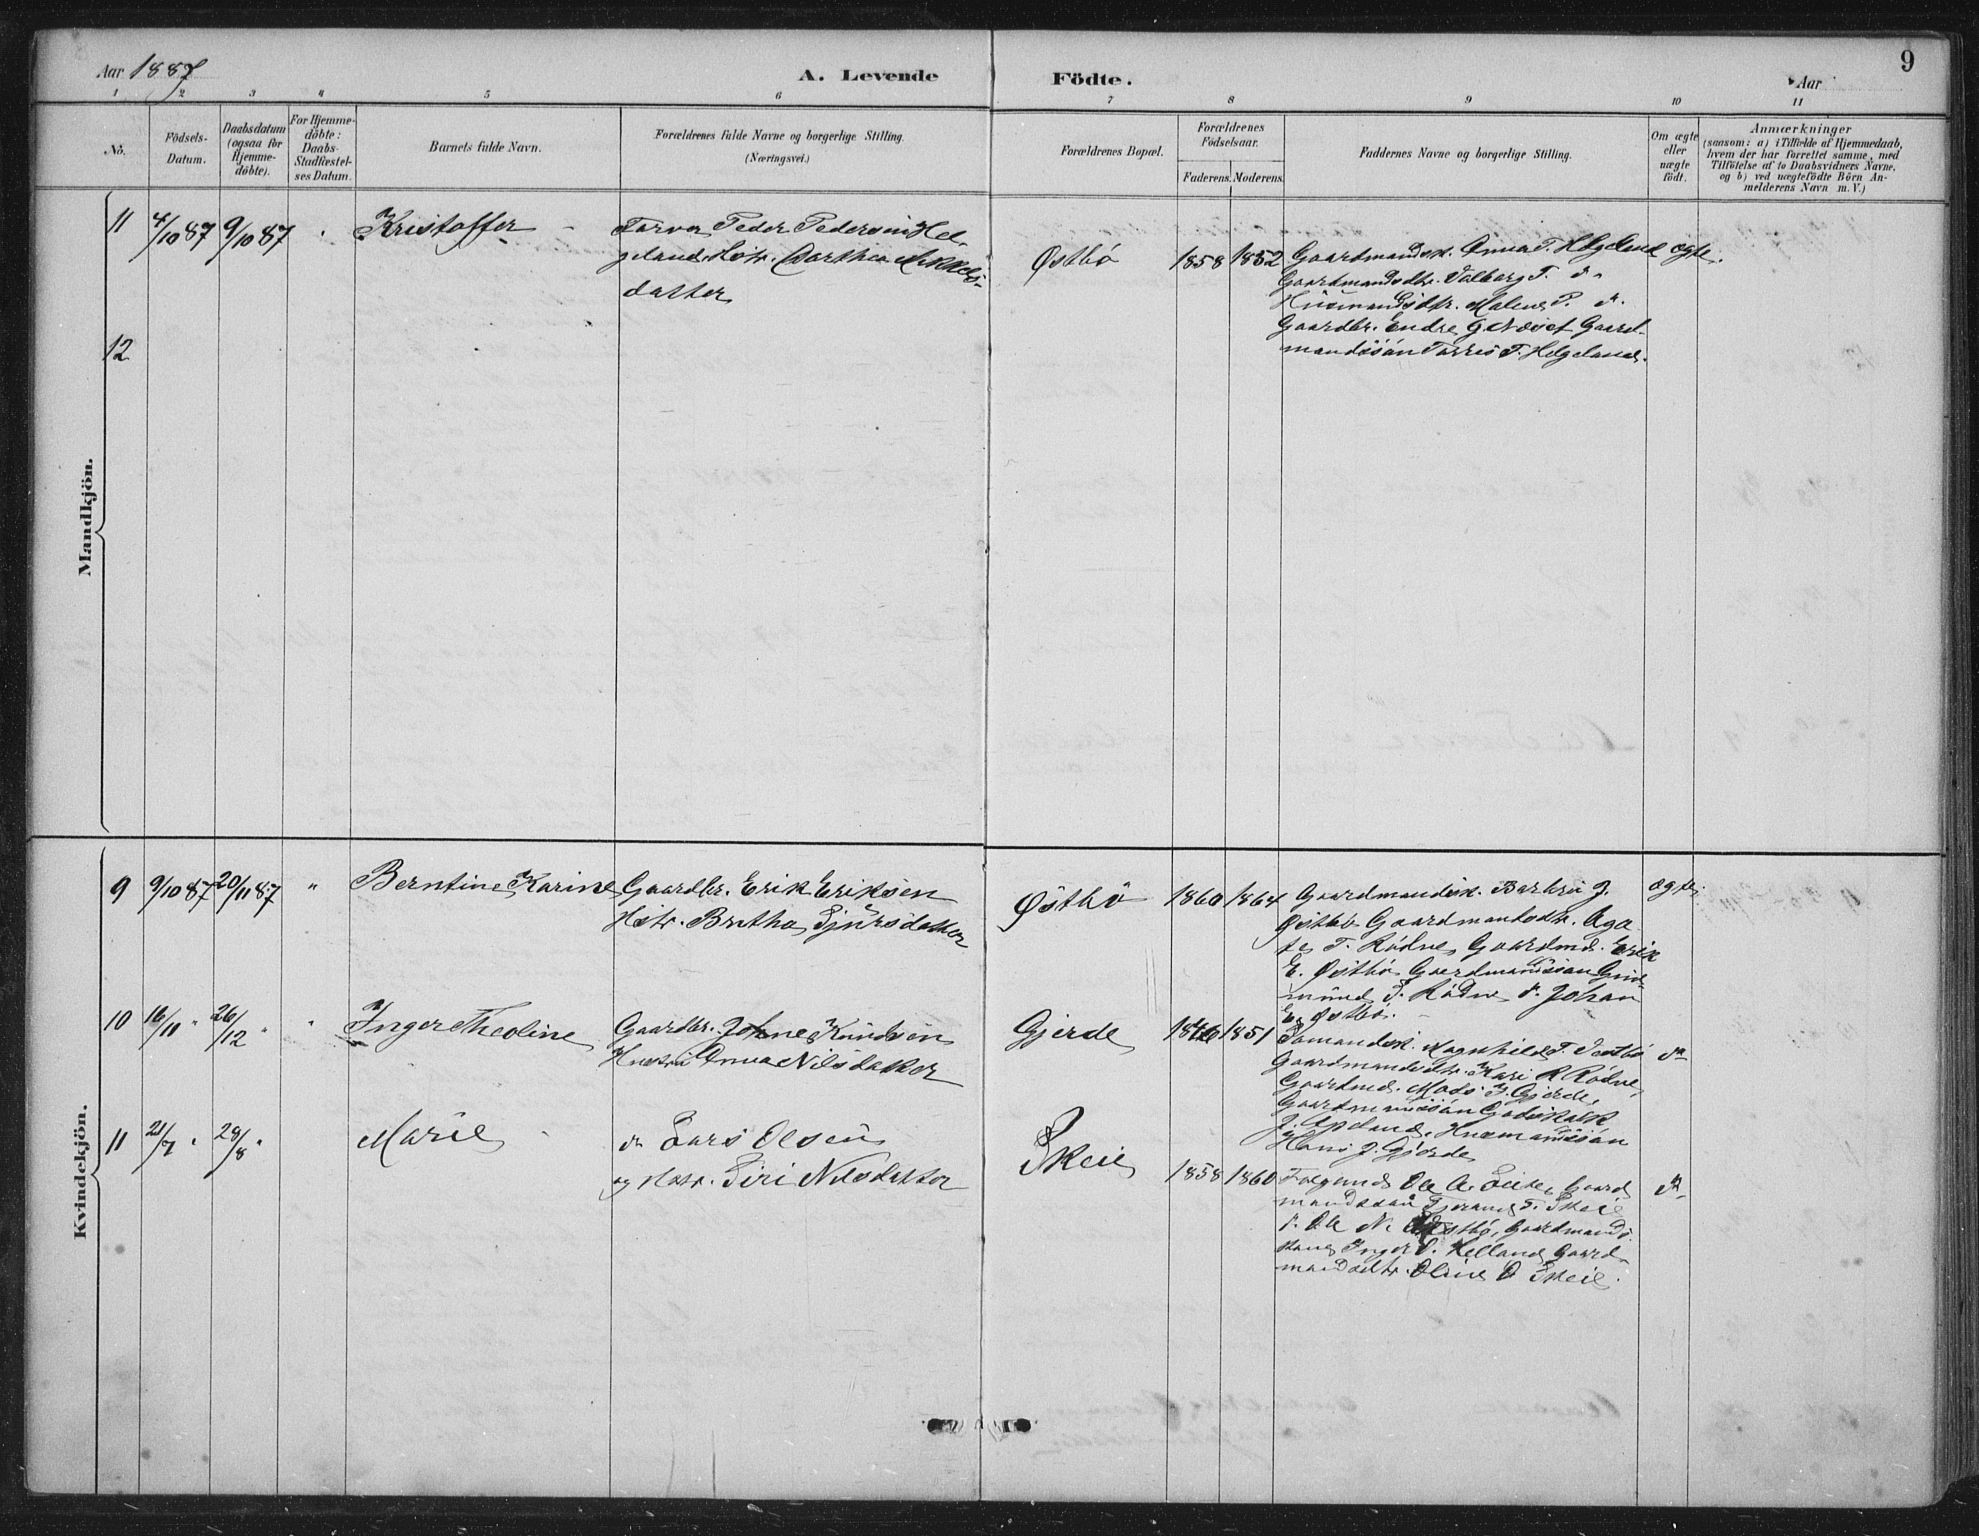 Aar 1887
A. Levende Födte.
Aar
9
1 2 3 4 5 6 7 8 9 10 11
No.
Födsels-Datum.
Daabsdatum (ogsaa for Hjemme-döbte).
For Hjemme-döbte: Daabs-Stadfæstel-ses Datum.
Barnets fulde Navn.
Forældrenes fulde Navne og borgerlige Stilling.
(Næringsvei.)
Forældrenes Bopæl.
Forældrenes Födselsaar.
Faderens. Moderens.
Faddernes Navne og borgerlige Stilling.
Om ægte eller uægte födt.
Anmærkninger
(saasom: a) i Tilfælde af Hjemmedaab,
hvem der har forrettet samme, med
Tilföielse af to Daabsvidners Navne,
og b) ved uægtefödte Börn An-
melderens Navn m. V.)
Mandkjön.
11 4/10 87 9/10 87 " Kristoffer
Farver Peder Pedersen Hel-
geland. Hstr. Marthea Mikkels-
datter
Østbø 1858 1852
Gaardmandsk. Anna T. Helgeland
Gaardmandsdtr. Valborg T. do
Husmandsdtr. Malene P. do.
Gaardbr. Endre G Næset Gaard-
mandssön Torres T. Helgeland.
ægte.
12
Kvindekjön.
9 9/10 87 20/11 87 " Berntine Karine
Gaardbr. Erik Eriksen
Hstr. Britha Sjursdatter
Østbø 1860 1864
Gaardmandsk. Barbru J.
Østbø Gaardmandsdtr. Aga
te T. Rödne, Gaardmd. Erik
E. Østbø Gaardmandssön Gud-
mund T. Rödne do. Johan
E. Østbø.
ægte.
10 16/11 " 26/12 " " Inger Theoline
Gaardbr. Johne Knudsen
Hustru Anna Nilsdatter
Gjerde 1846 1851
Magnhild T. Østbø
Gaardmandsdtr. Kari R Rödne,
Gaardmd. Mads J. Gjerde,
Gaardmandssön Godskalk
J. Apeland, Husmandssön
Hans J. Gjerde
do
11 21/7 " 28/8 " Marie
do Lars Olsen
og Hstr. Siri Nilsdatter
Skeie 1858 1860
Ole A. Leite, Gaard
mandssön Tjerand T. Skeie
do. Ole N. Østbø, Gaardmands
kone Inger S. Helland, Gaard-
mandsdtr. Oline O Skeie.
do